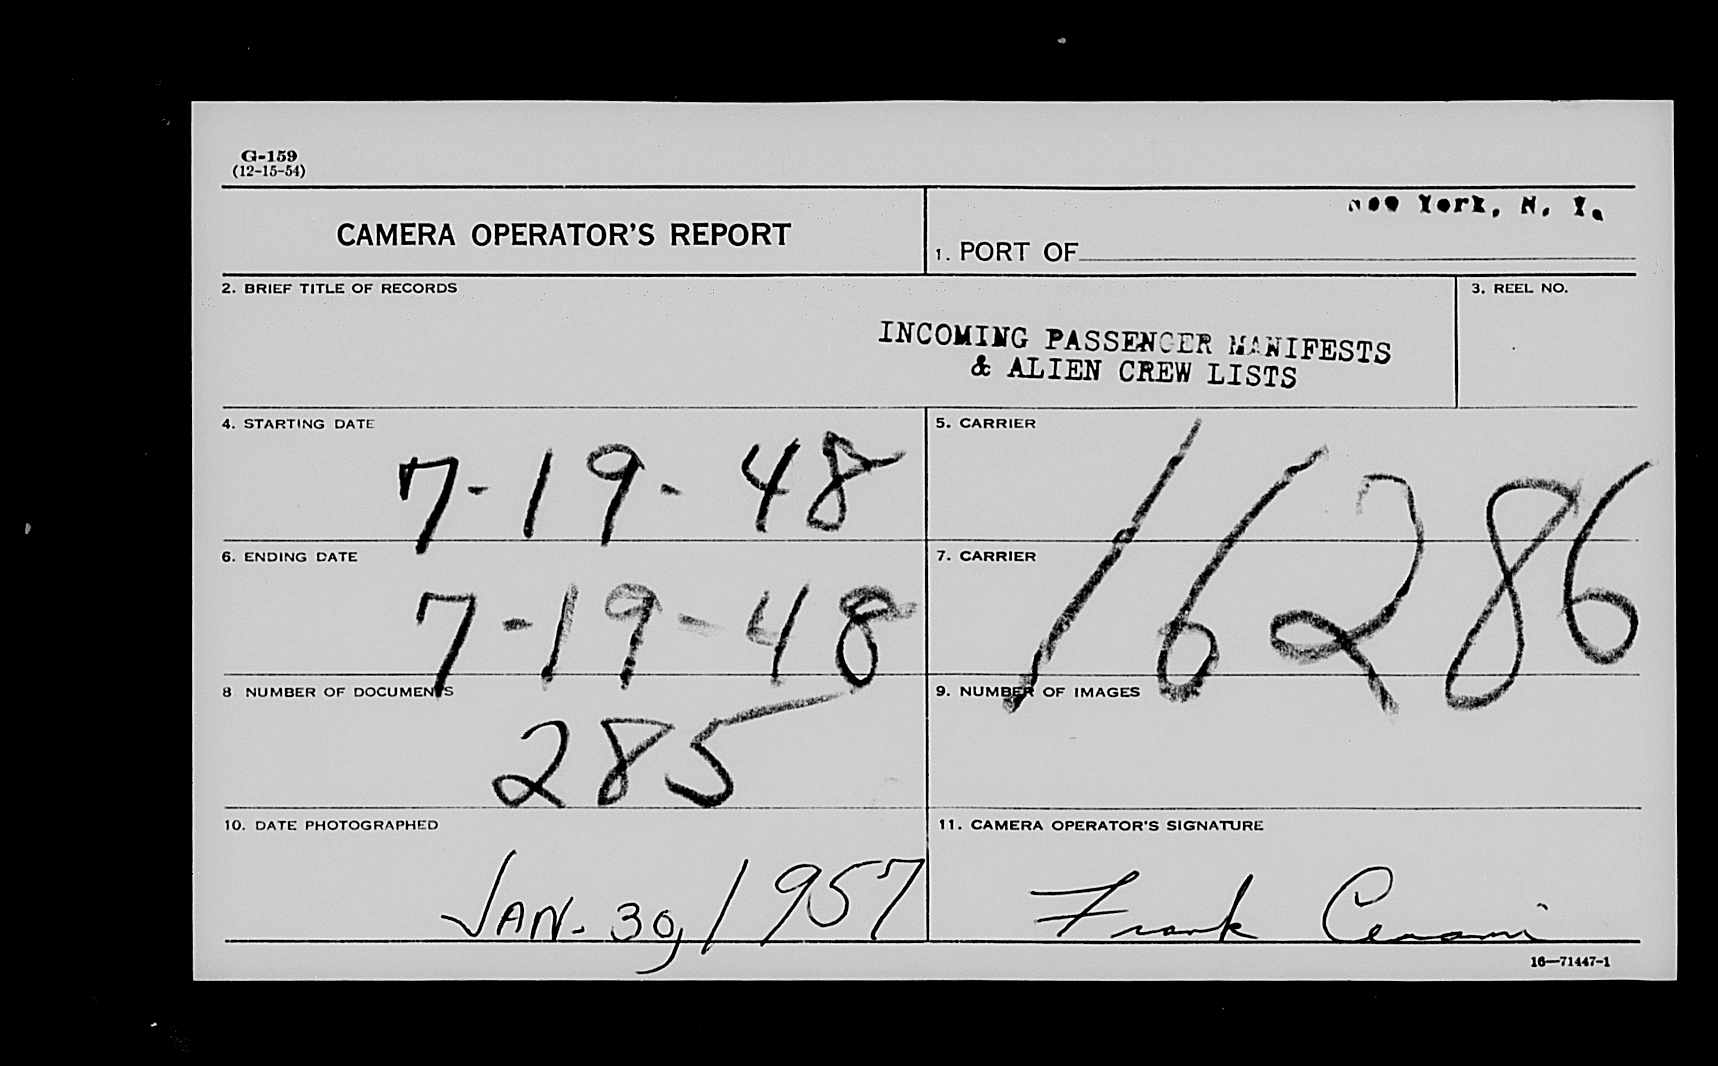 G-159
(12-15-54)
CAMERA OPERATOR'S REPORT
New York, N. Y.
1. PORT OF
2. BRIEF TITLE OF RECORDS
3. REEL NO.
INCOMING PASSENGER MANIFESTS
& ALIEN CREW LISTS
4. STARTING DATE
7-19-48
5. CARRIER
16286
6. ENDING DATE
7-19-48
7. CARRIER
8 NUMBER OF DOCUMENTS
285
9. NUMBER OF IMAGES
10. DATE PHOTOGRAPHED
JAN. 30, 1957
11. CAMERA OPERATOR'S SIGNATURE
Frank
16—71447-1